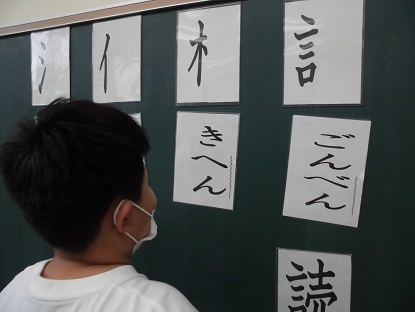 氵
亻
木
訁
きへん
ごんべん
読